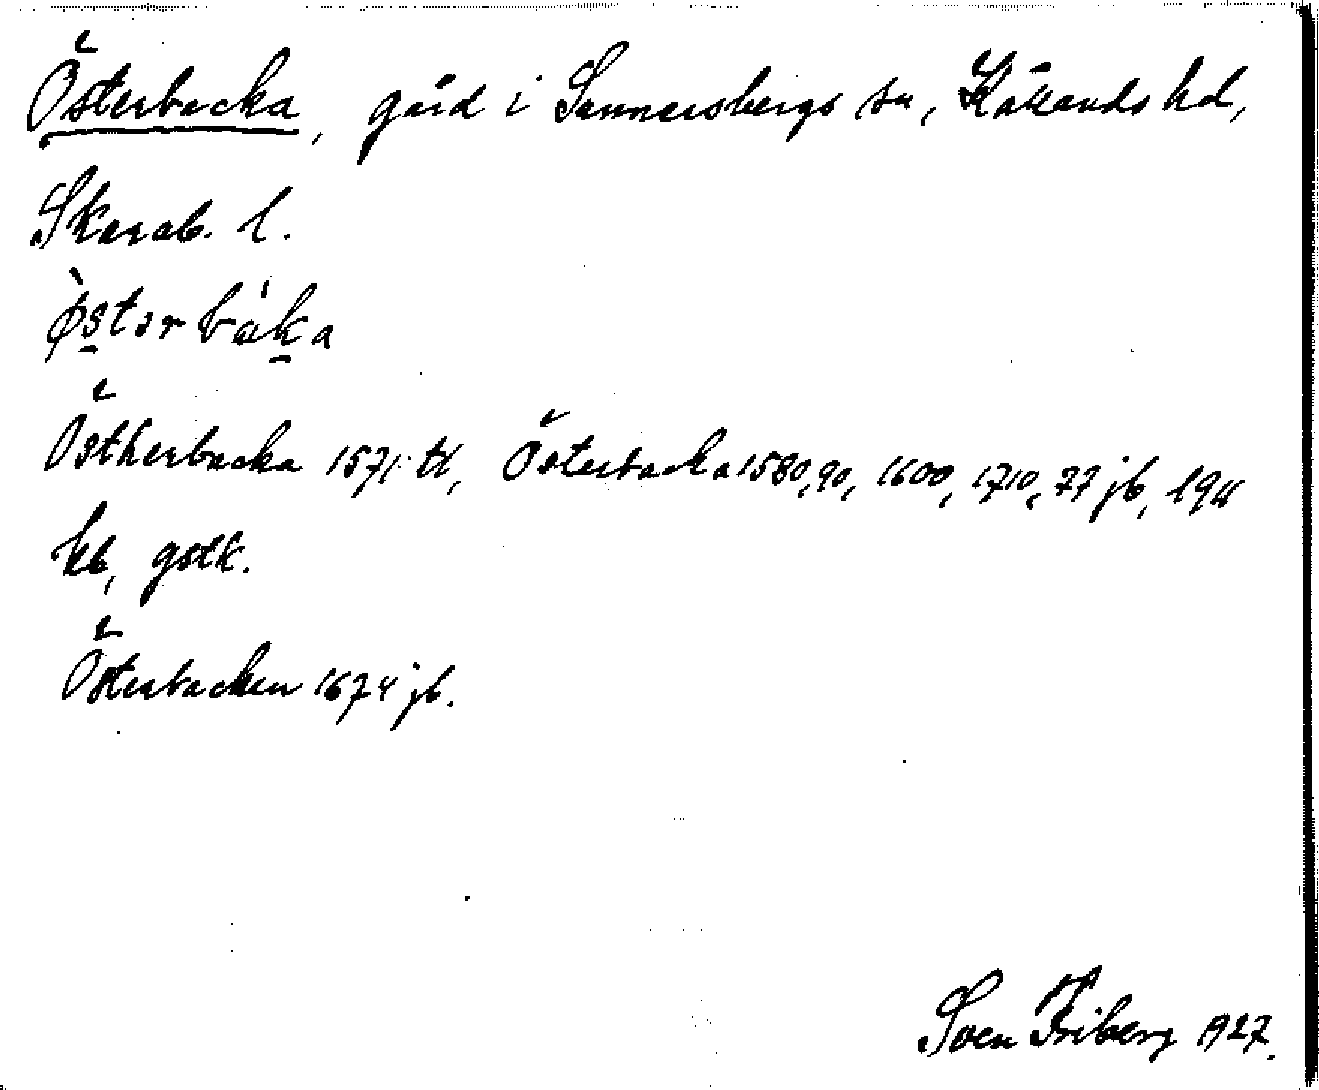 Österbacka, gård i Sunnersbergs sn, Kållands hd,
Skarab. l.
östərbaka
Östherbacka 1571 tl, Österbacka 1580, 90, 1600, 1710, 77 jb, 1911
kb, gstk.
Österbacken 1674 jb.
Sven Friberg 1927.